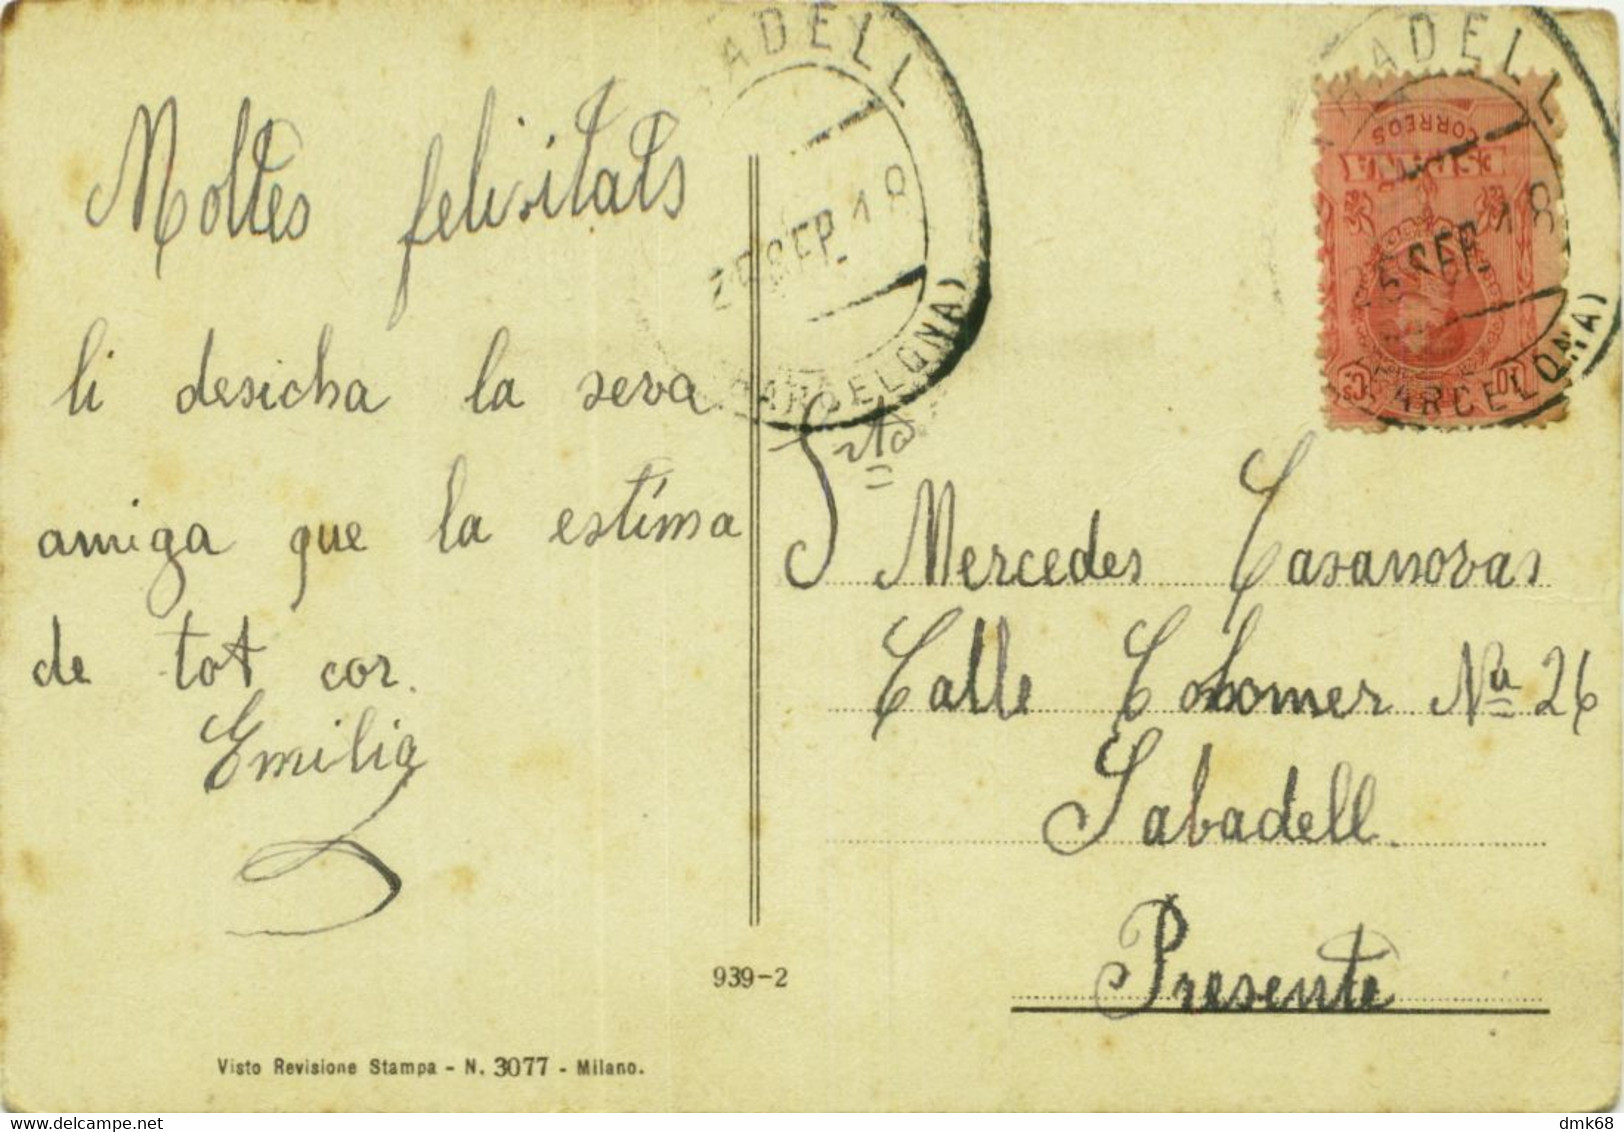 Moltes felisitats
li desicha la seva
amiga que la estíma
de tot cor.
Emilia
SABADELL
25 SEP. 18
(BARCELONA)
CORREOS
ESPAÑA
10
SABADELL
25 SEP. 18
(BARCELONA)
Srta
Mercedes Casanovas
Calle Colomer Nu 26
Sabadell.
Presente
939-2
Visto Revisione Stampa - N. 3077 - Milano.
dmk68